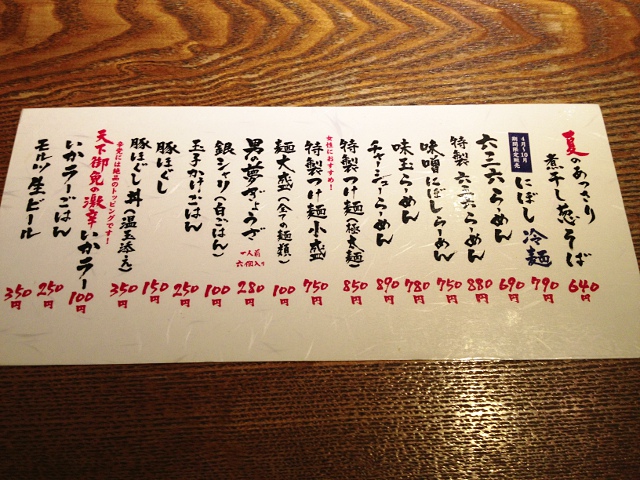 夏のあっさり
煮干し葱そば
640円
4月〜10月
期間限定販売
にぼし冷麺
790円
六三六らーめん
690円
特製六三六らーめん
880円
味噌にぼしらーめん
750円
味玉らーめん
780円
チャーシューらーめん
890円
特製つけ麺(極太麺)
850円
女性におすすめ!
特製つけ麺小盛
750円
麺大盛(全ての麺類)
100円
男の夢ぎょうざ
一人前
六個入り
280円
銀シャリ(白ごはん)
100円
玉子かけごはん
250円
豚ほぐし
150円
豚ほぐし丼(温玉添え)
350円
辛党には絶品のトッピングです!
天下御免の激辛いかラー
100円
いかラーごはん
250円
モルツ生ビール
350円